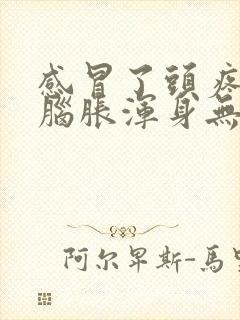 感冒了頭疼
腦脹渾身無
阿尔卑斯-馬